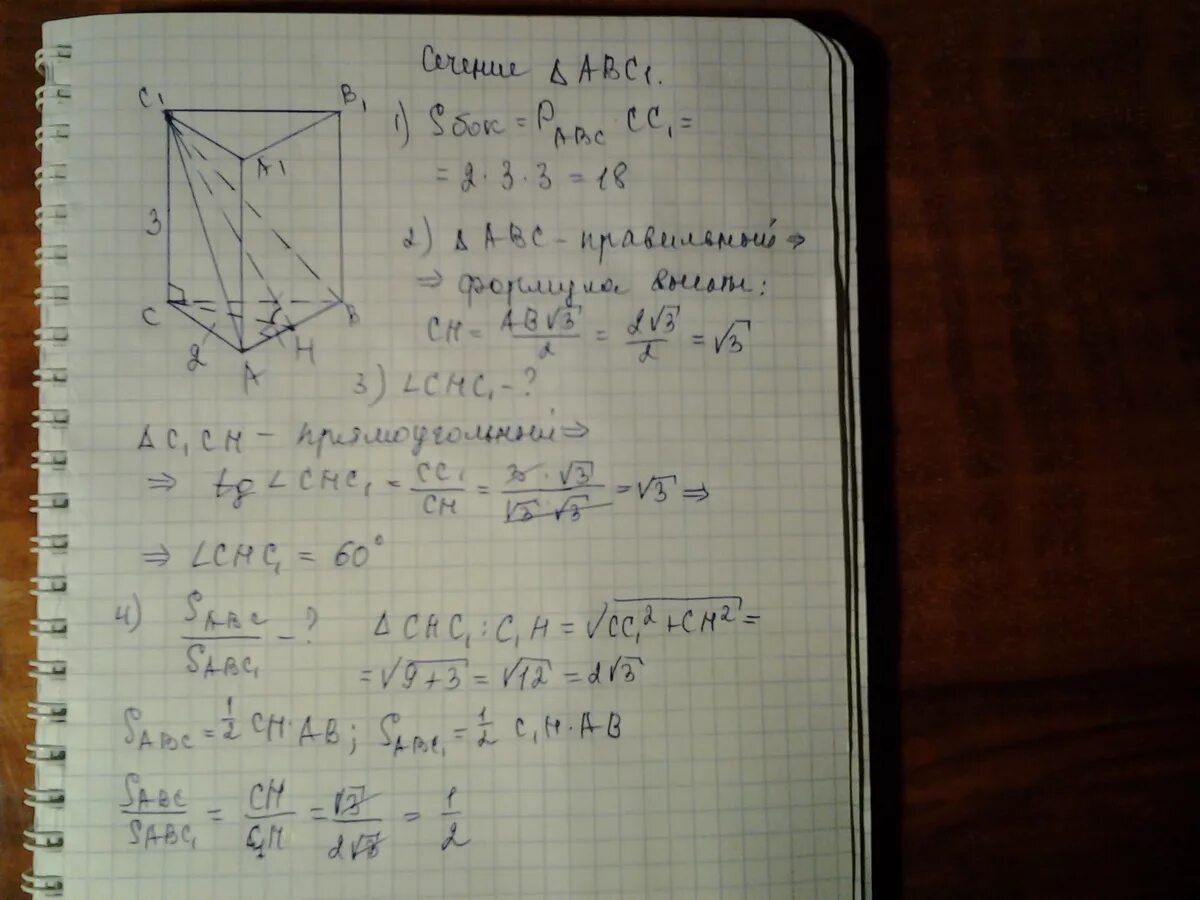 Сечение ΔABC₁.
C₁ B₁
A₁
3
C B
2 H
A
1) Sбок = P_ABC · CC₁ =
= 2 · 3 · 3 = 18
2) ΔABC – правильный ⇒
⇒ формула высоты:
CH = AB√3/2 = 2√3/2 = √3
3) ∠CHC₁ – ?
ΔC₁CH – прямоугольный ⇒
⇒ tg ∠CHC₁ = CC₁/CH = 3·√3/√3·√3 = √3 ⇒
⇒ ∠CHC₁ = 60°
4) S_ABC/S_ABC₁ – ? ΔCHC₁: C₁H = √(CC₁² + CH²) =
= √(9+3) = √12 = 2√3
S_ABC = 1/2 CH·AB; S_ABC₁ = 1/2 C₁H·AB
S_ABC/S_ABC₁ = CH/C₁H = √3/2√3 = 1/2